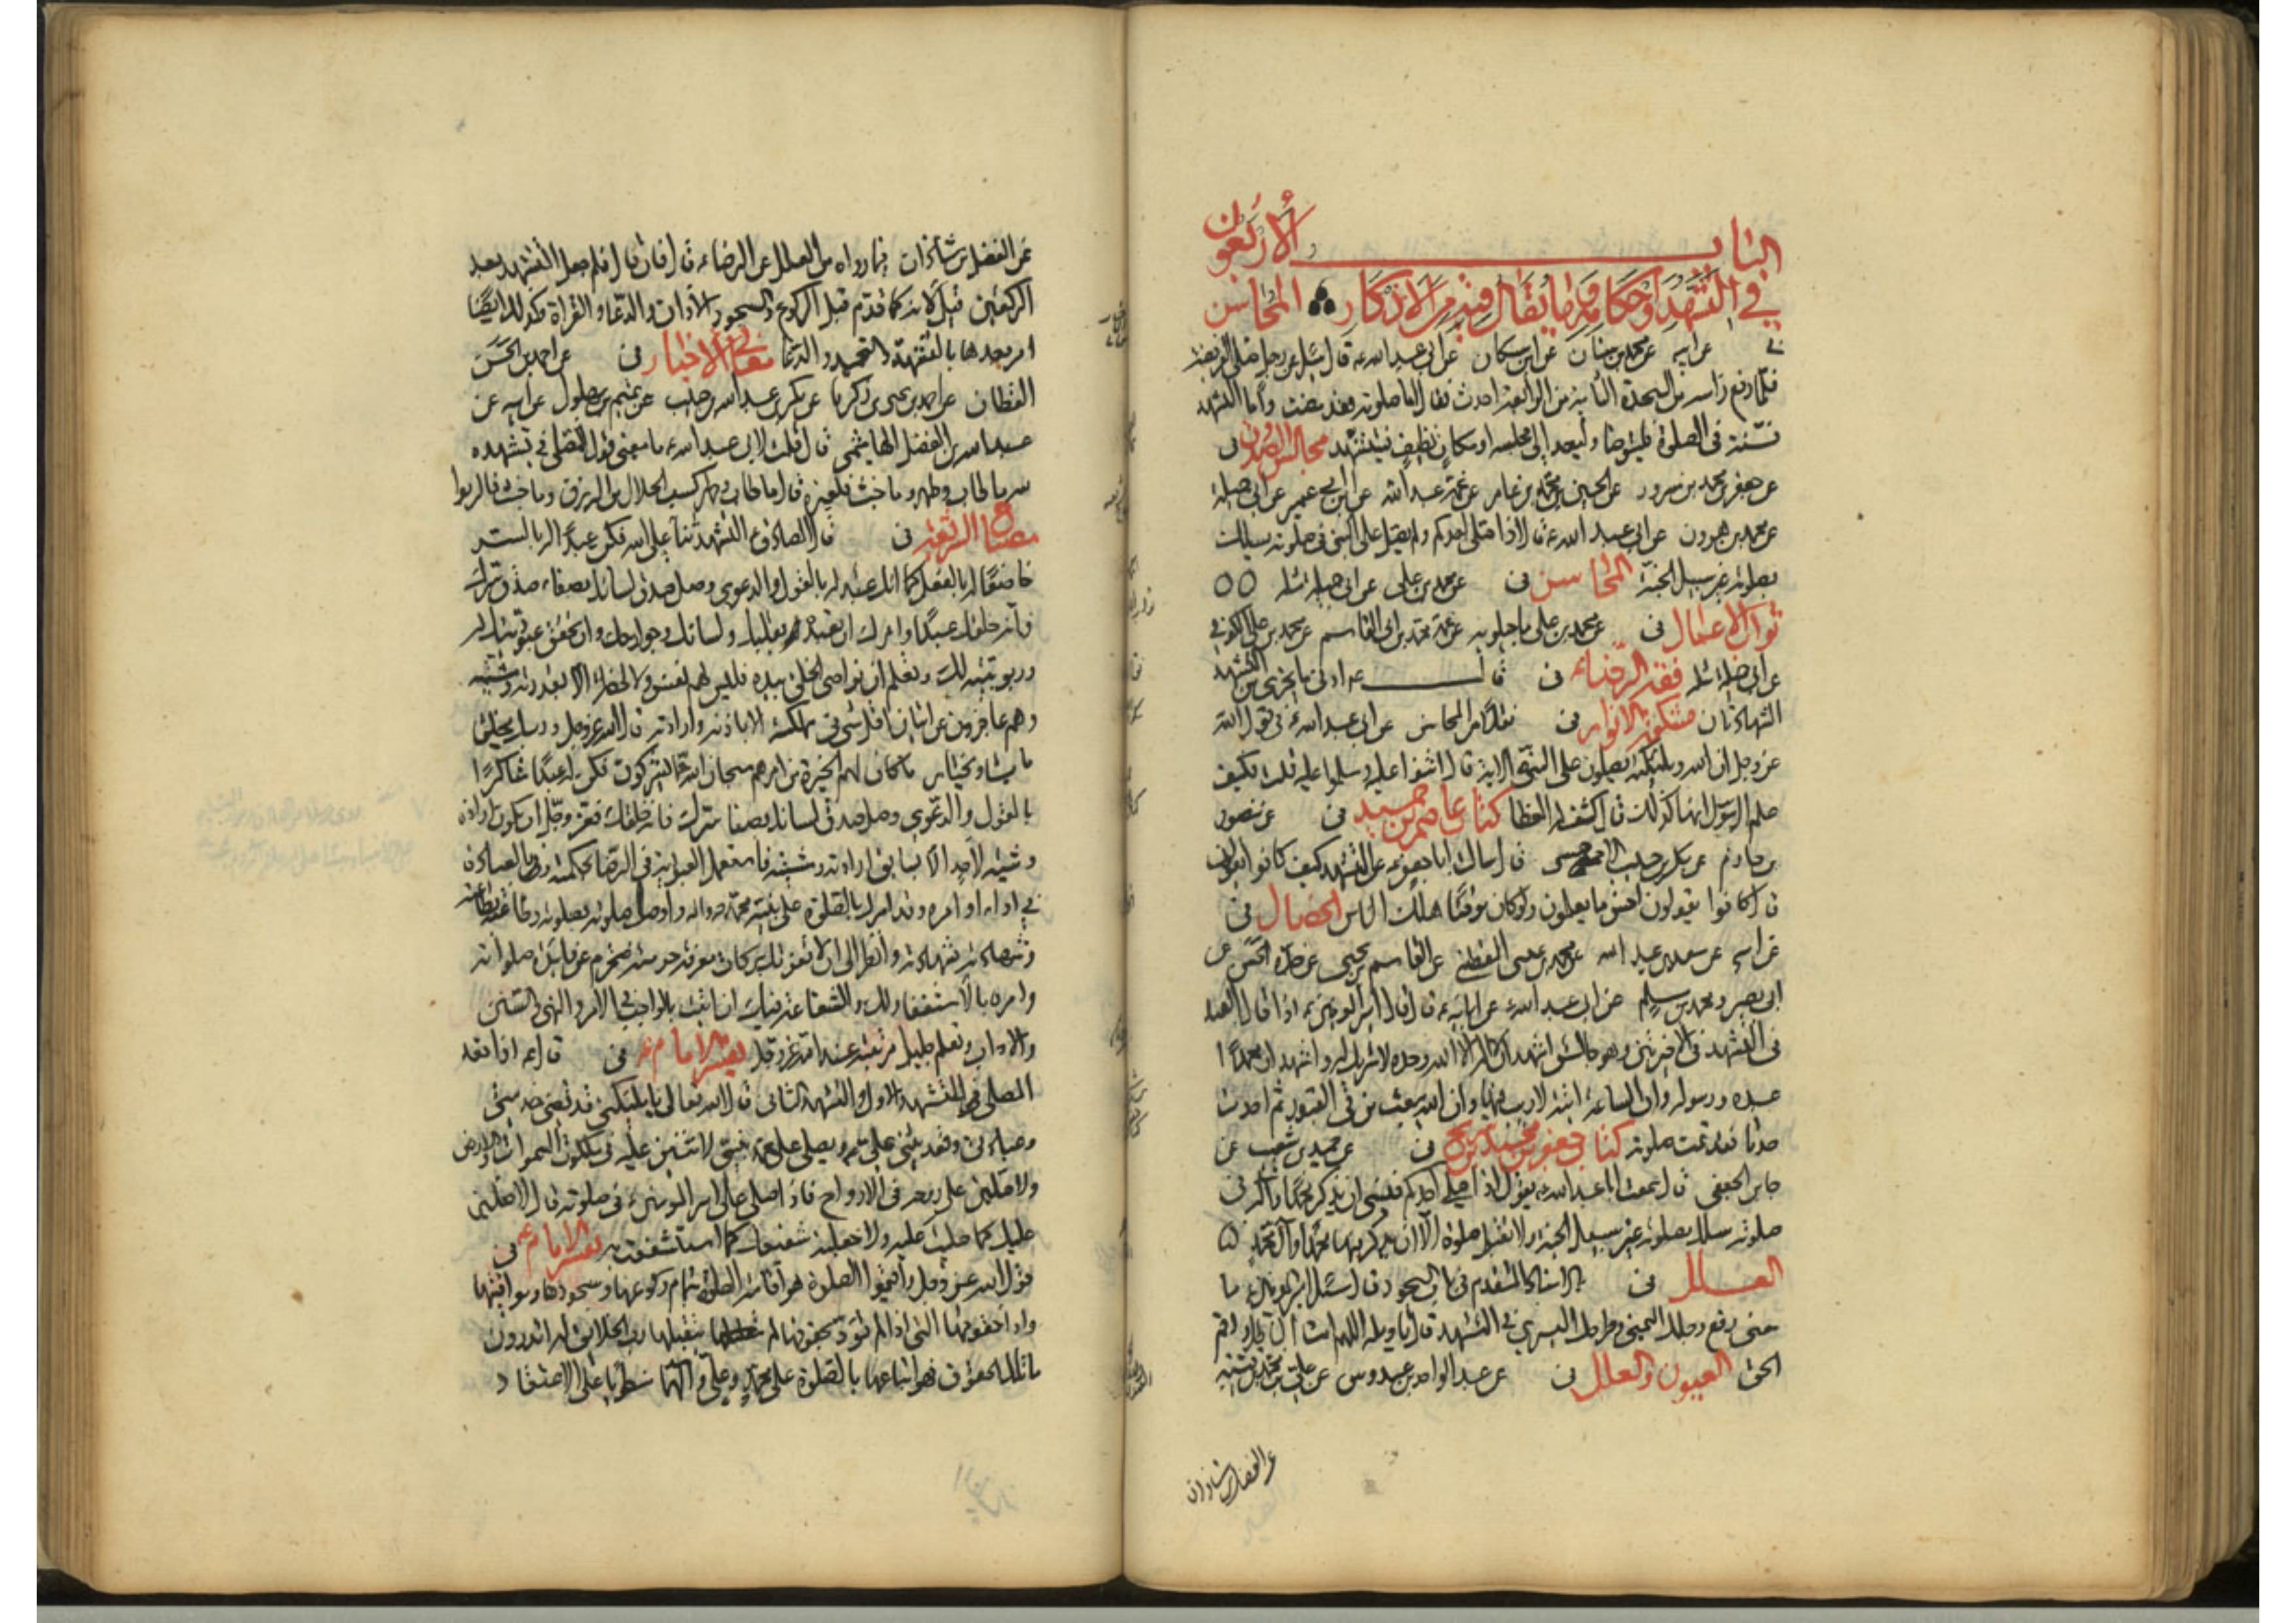 الباب الأربعون
في التشهد وأحكامه وما يقال فيه من الأذكار المحاسن
في عن ابيه عن محمد بن سنان عن ابن مسكان عن ابي عبد الله ع قال سئل عن رجل صلى الفريضة
فلما رفع راسه من السجدة الثانية من الرابعة احدث فقال اما صلوته فقد مضت واما التشهد
فسنة في الصلوة فليتوضا وليعد الى مجلسه او مكان نظيف فيتشهد مجالس الصدوق في
عن جعفر بن محمد بن مسرور عن الحسين بن محمد بن عامر عن عمه عبد الله عن ابن ابي عمير عن ابي جميلة
عن محمد بن هرون عن ابي عبد الله ع قال اذا صلى احدكم ولم يصل على النبي في صلوته سلك
بصلوته غير سبيل الجنة المحاسن في عن محمد بن علي عن ابي جميلة مثله
ثواب الاعمال في عن محمد بن علي ماجيلويه عن عمه محمد بن ابي القاسم عن محمد بن علي الكوفي
عن ابي جميلة مثله فقه الرضاء في قال ع ادنى ما يجزي من التشهد
الشهادتان مشكوة الانوار في نقلا من المحاسن عن ابي عبد الله ع في قول الله
عز وجل ان الله وملئكته يصلون على النبي الاية قال اثنوا عليه وسلموا عليه قلت فكيف
علم الرسل انها كذلك قال كشف له الغطا كتاب عاصم بن حميد في عن منصور
بن حازم عن بكر بن حبيب الاحمسي قال سالت ابا جعفر ع عن التشهد كيف كانوا يقولون
قال كانوا يقولون احسن ما يعلمون ولو كان موقتا هلك الناس الخصال في
عن ابيه عن سعد بن عبد الله عن محمد بن عيسى اليقطيني عن القاسم بن يحيى عن جده الحسن عن
ابي بصير ومحمد بن مسلم عن ابي عبد الله ع عن ابائه ع قال قال امير المومنين ع اذا قال العبد
في التشهد في الاخيرتين وهو جالس اشهد ان لا اله الا الله وحده لا شريك له واشهد ان محمدا
عبده ورسوله وان الساعة اتية لا ريب فيها وان الله يبعث من في القبور ثم احدث
حدثا فقد تمت صلوته كتاب جعفر بن محمد بن شريح في عن حميد بن شعيب عن
جابر الجعفي قال سمعت ابا عبد الله ع يقول اذا صلى احدكم فنسي ان يذكر محمدا واله في
صلوته سلك بصلوته غير سبيل الجنة ولا تقبل صلوة الا ان يذكر فيها محمدا وآل محمد
العلل في بالاسناد المتقدم في باب السجود قال سئل امير المومنين ع ما
معنى رفع رجلك اليمنى وطرحك اليسرى في التشهد قال تاويله اللهم امت الباطل واقم
الحق العيون والعلل في عن عبد الواحد بن عبدوس عن علي بن محمد بن قتيبة
عن الفضل بن شاذان
عن الفضل بن شاذان فيما رواه من العلل عن الرضا ع قال فان قال فلم جعل التشهد بعد
الركعتين قيل لانه كما قدم قبل الركوع والسجود الاذان والدعا والقراة فكذلك ايضا
امر بعدها بالتشهد والتحميد والدعا معاني الاخبار في عن احمد بن الحسن
القطان عن احمد بن يحيى بن زكريا عن بكر بن عبد الله بن حبيب عن تميم بن بهلول عن ابيه عن
عبد الله بن الفضل الهاشمي قال قلت لابي عبد الله ع ما معنى قول المصلي في تشهده
لله ما طاب وطهر وما خبث فلغيره قال ما طاب وطهر كسب الحلال من الرزق وما خبث فالربوا
مصباح الشريعة في قال الصادق ع التشهد ثنا على الله فكن عبدا له بالسر
خاضعا له بالفعل كما انك عبد له بالقول والدعوى وصل صدق لسانك بصفاء صدق سرك
فانه خلقك عبدا وامرك ان تعبده بقلبك ولسانك وجوارحك وان تحقق عبوديتك له
وربوبيته لك وتعلم ان نواصي الخلق بيده فليس لهم نفس ولا لحظة الا بقدرته ومشيته
وهم عاجزون عن اتيان اقل شي في مملكته الا باذنه وارادته قال الله عز وجل وربك يخلق
ما يشاء ويختار ما كان لهم الخيرة من امرهم سبحان الله عما يشركون فكن له عبدا شاكرا
بالقول والدعوى وصل صدق لسانك بصفا سرك فانه خلقك فعز وجل ان يكون ارادة
ومشية لاحد الا بسابق ارادته ومشيته فاستعمل العبودية في الرضا بحكمته وبالعبادة
في اداء اوامره وقد امرك بالصلوة على نبيه محمد ص واله واوصل صلوته بصلوته وطاعته بطاعته
وشهادته بشهادته وانظر الى ان لا تفوتك بركات معرفة حرمته فتحرم عن فايدة صلواته
وامره بالاستغفار لك والشفاعة فيك ان اتيت بالواجب في الامر والنهي والسنن
والاداب وتعلم جليل مرتبته عند الله عز وجل تفسير الامام ع في قال ع اذا قعد
المصلي للتشهد الاول والتشهد الثاني قال الله تعالى يا ملئكتي قد قضى خدمتي
وعبادتي وقعد يثني علي ويصلي على محمد نبيي لاثنين عليه في ملكوت السموات والارض
ولاصلين على روحه في الارواح فاذا صلى على امير المومنين ع في صلوته قال لاصلين
عليك كما صليت عليه ولاجعلنه شفيعك كما استشفعت به تفسير الامام ع في
قول الله عز وجل واقيموا الصلوة هو اقامة الصلوة بتمام ركوعها وسجودها ومواقيتها
واداء حقوقها التي اذا لم تؤد بحقوقها لم يتقبلها رب الخلايق اتدرون
ما تلك الحقوق فهو اتباعها بالصلوة على محمد وعلي وآلهما منطويا على الاعتقاد